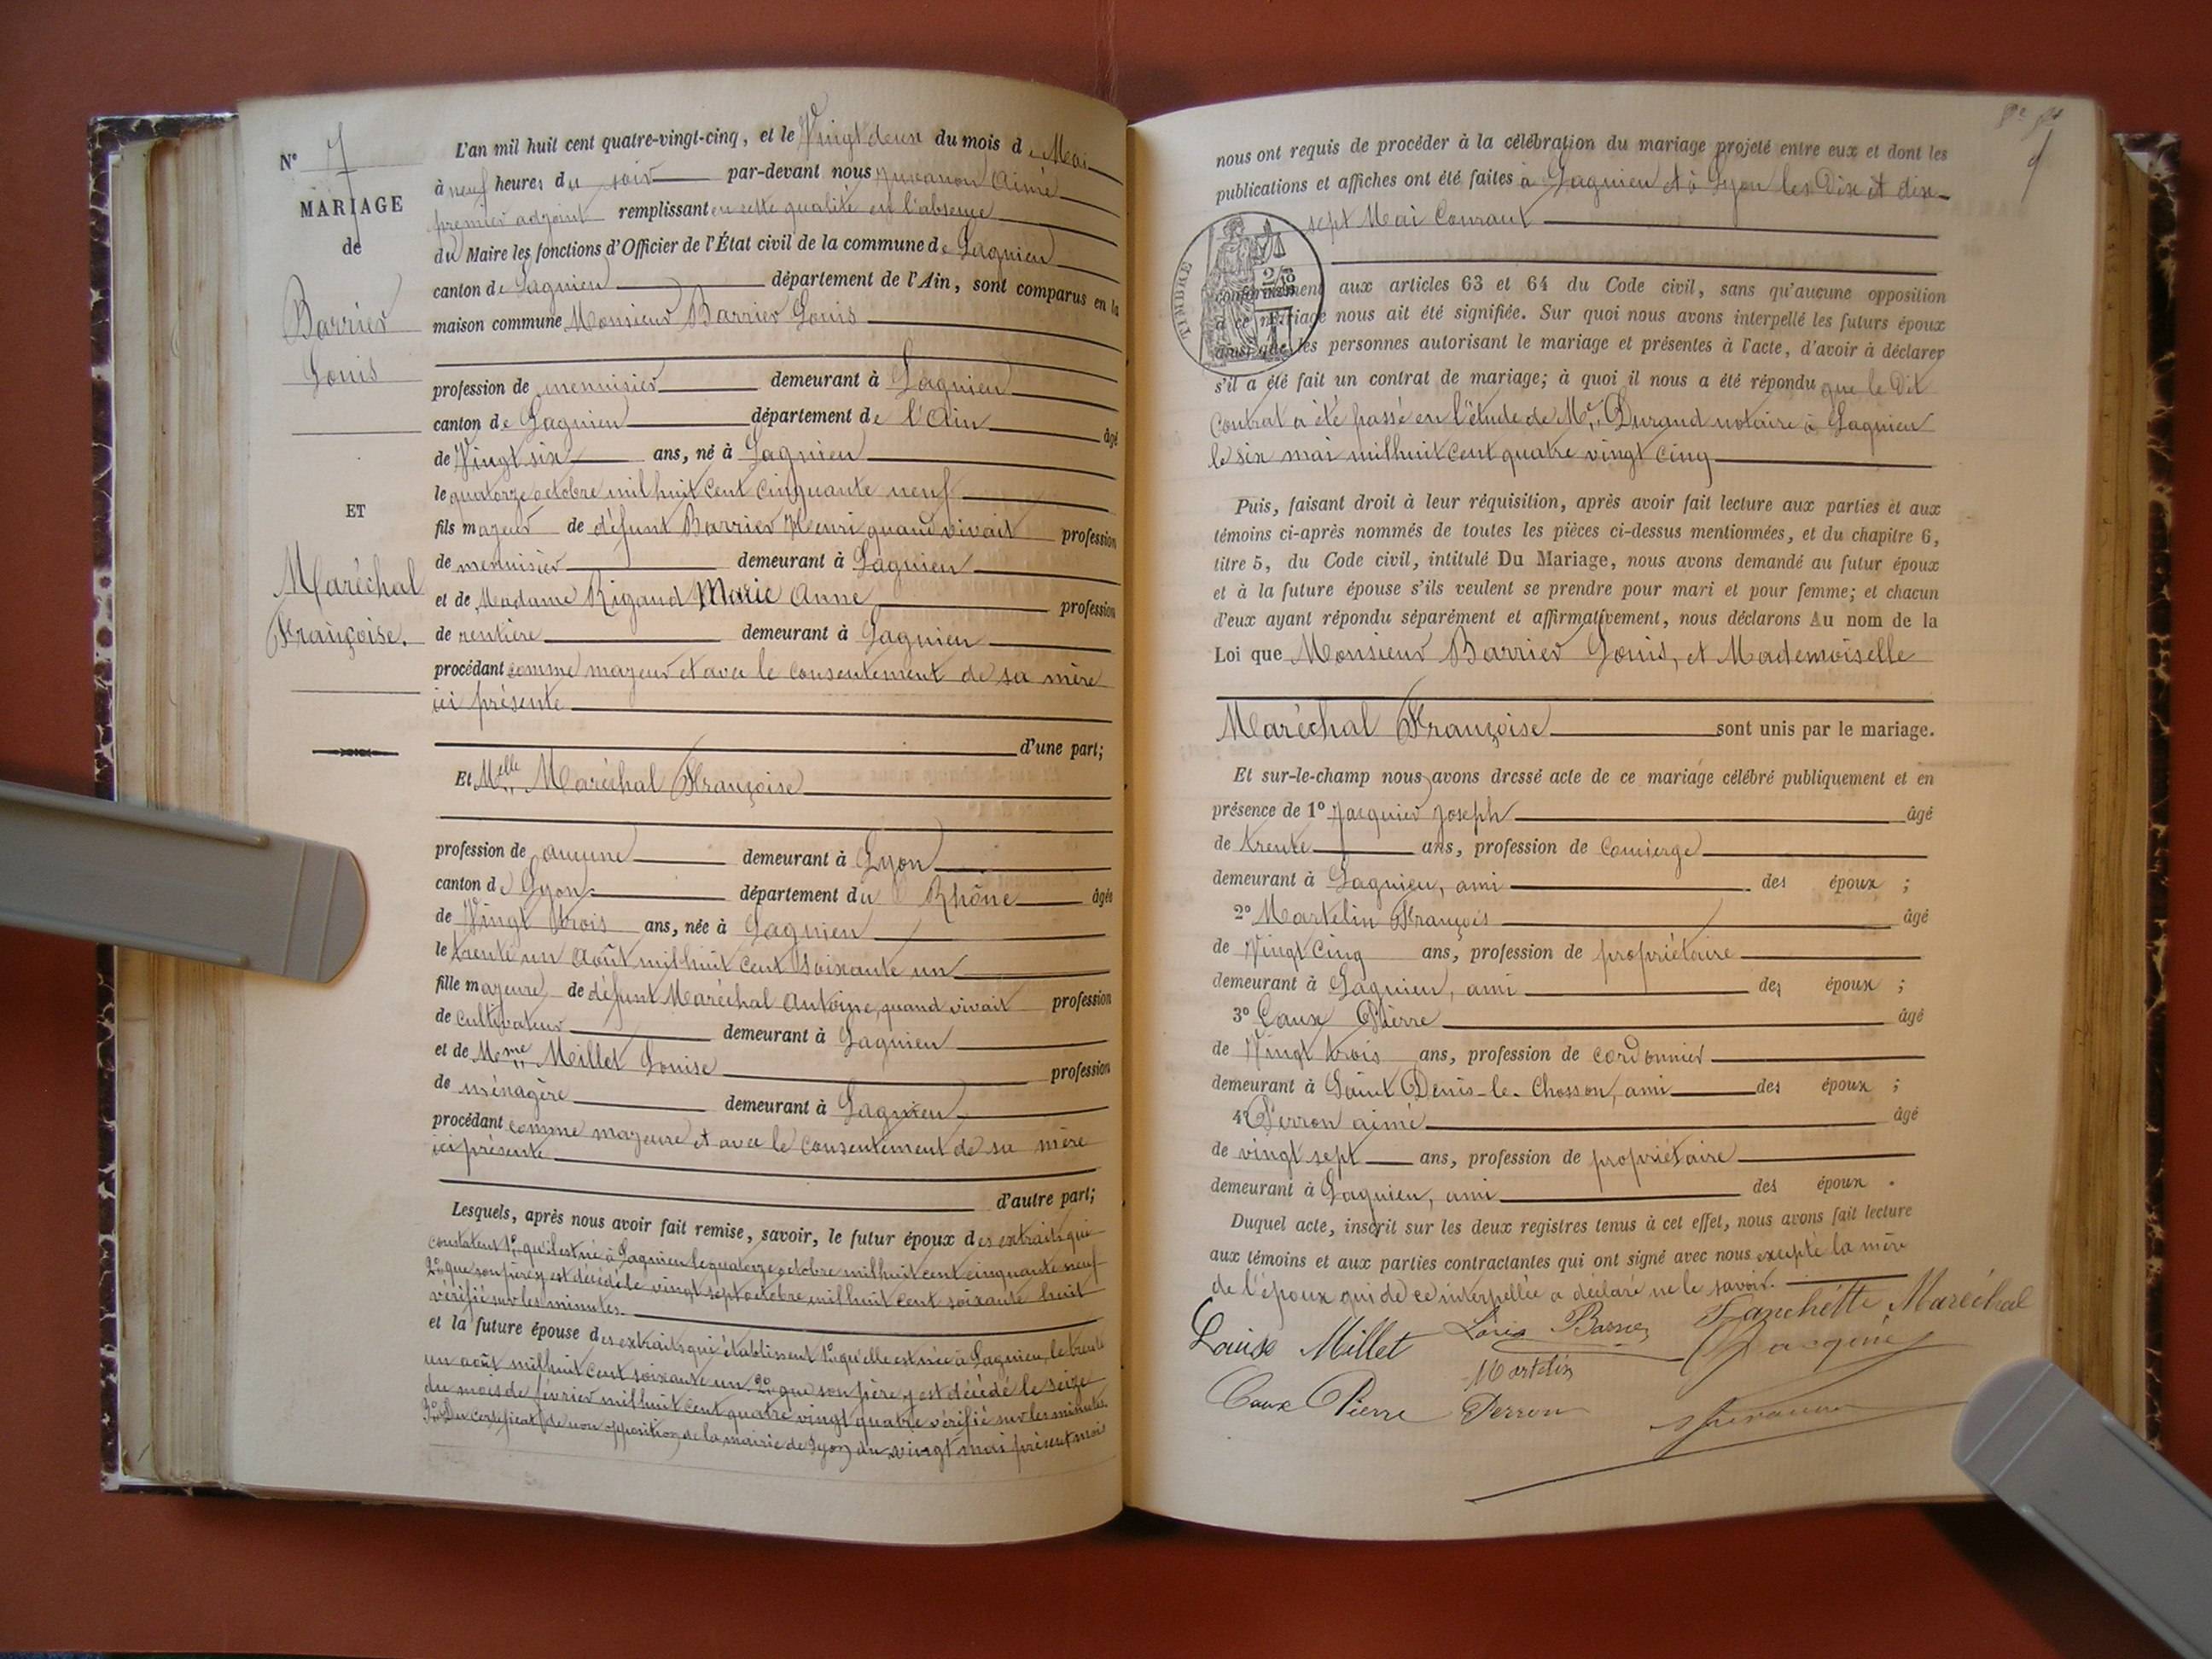 N° 7
MARIAGE
de
Barrier
Louis
ET
Maréchal
Françoise.
L'an mil huit cent quatre-vingt-cinq, et le Vingt deux du mois de Mai
à neuf heures du soir par-devant nous Juvanon Aimé
premier adjoint remplissant en cette qualité en l'absence
du Maire les fonctions d'Officier de l'État civil de la commune de Lagnieu
canton de Lagnieu département de l'Ain, sont comparus en la
maison commune Monsieur Barrier Louis
profession de menuisier demeurant à Lagnieu
canton de Lagnieu département de l'Ain âgé
de Vingt six ans, né à Lagnieu
le quatorze octobre mil huit cent cinquante neuf
fils majeur de défunt Barrier Henri quand vivait profession
de menuisier demeurant à Lagnieu
et de Madame Rigaud Marie Anne profession
de rentière demeurant à Lagnieu
procédant comme majeur et avec le consentement de sa mère
ici présente
d'une part;
Et Melle Maréchal Françoise
profession de aucune demeurant à Lyon
canton de Lyon département du Rhône âgée
de Vingt trois ans, née à Lagnieu
le trente un Août mil huit cent soixante un
fille majeure de défunt Maréchal Antoine, quand vivait profession
de cultivateur demeurant à Lagnieu
et de Mme Millet Louise profession
de ménagère demeurant à Lagnieu
procédant comme majeure et avec le consentement de sa mère
ici présente
d'autre part;
Lesquels, après nous avoir fait remise, savoir, le futur époux des extraits qui
constatent 1° qu'il est né à Lagnieu le quatorze octobre mil huit cent cinquante neuf
2° que son père y est décédé le vingt sept octobre mil huit cent soixante huit
vérifié sur les minutes.
et la future épouse des extraits qui établissent 1° qu'elle est née à Lagnieu, le trente
un août mil huit cent soixante un. 2° que son père y est décédé le seize
du mois de février mil huit cent quatre vingt quatre vérifié sur les minutes.
3° Du certificat de non opposition de la mairie de Lyon du vingt mai présent mois
nous ont requis de procéder à la célébration du mariage projeté entre eux et dont les
publications et affiches ont été faites à Lagnieu et à Lyon les Dix et dix-
sept Mai Courant
TIMBRE
conformément aux articles 63 et 64 du Code civil, sans qu'aucune opposition
à ce mariage nous ait été signifiée. Sur quoi nous avons interpellé les futurs époux
ainsi que les personnes autorisant le mariage et présentes à l'acte, d'avoir à déclarer
s'il a été fait un contrat de mariage; à quoi il nous a été répondu que le Dit
Contrat a été passé en l'étude de Me Durand notaire à Lagnieu
le six mai mil huit cent quatre vingt cinq
Puis, faisant droit à leur réquisition, après avoir fait lecture aux parties et aux
témoins ci-après nommés de toutes les pièces ci-dessus mentionnées, et du chapitre 6,
titre 5, du Code civil, intitulé Du Mariage, nous avons demandé au futur époux
et à la future épouse s'ils veulent se prendre pour mari et pour femme; et chacun
d'eux ayant répondu séparément et affirmativement, nous déclarons Au nom de la
Loi que Monsieur Barrier Louis, et Mademoiselle
Maréchal Françoise sont unis par le mariage.
Et sur-le-champ nous avons dressé acte de ce mariage célébré publiquement et en
présence de 1° Jacquier Joseph âgé
de trente ans, profession de Concierge
demeurant à Lagnieu, ami des époux ;
2° Martelin François âgé
de Vingt Cinq ans, profession de propriétaire
demeurant à Lagnieu, ami des époux ;
3° Caux Pierre âgé
de Vingt trois ans, profession de cordonnier
demeurant à Saint Denis-le-Chosson, ami des époux ;
4° Perron aimé âgé
de vingt sept ans, profession de propriétaire
demeurant à Lagnieu, ami des époux .
Duquel acte, inscrit sur les deux registres tenus à cet effet, nous avons fait lecture
aux témoins et aux parties contractantes qui ont signé avec nous excepté la mère
de l'époux qui de ce interpellée a déclaré ne le savoir.
Louise Millet Louis Barrier Fanchette Maréchal
Martelin Jacquier
Caux Pierre Perron Juvanon